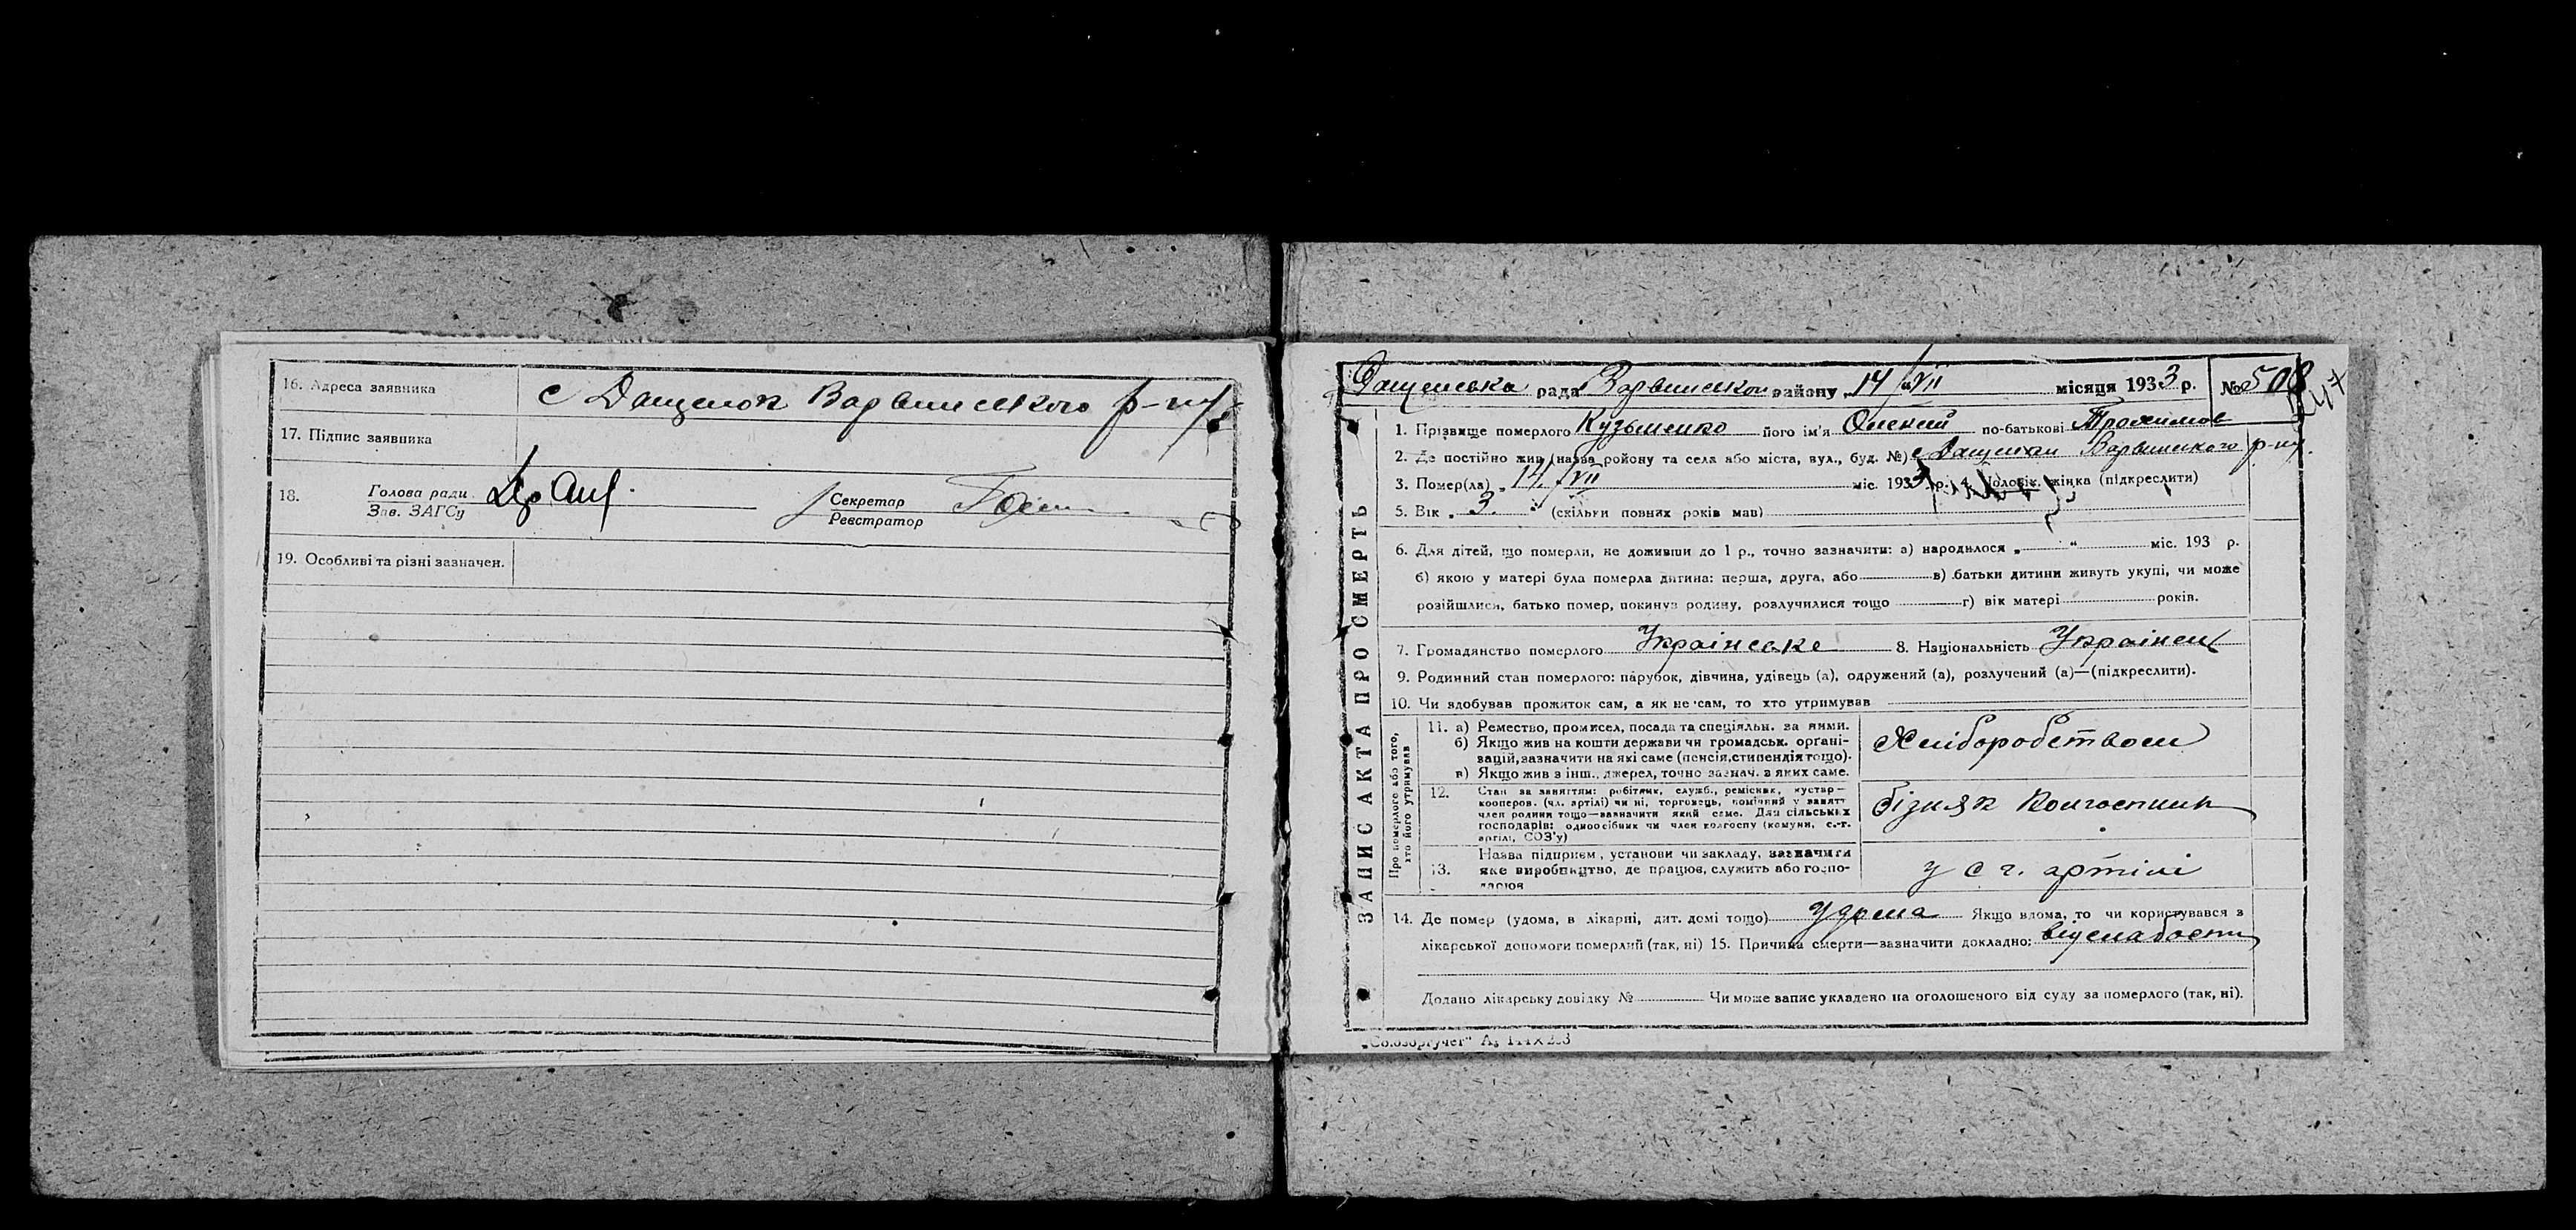 16. Адреса заявника с Дащенок Варвинського р-ну
17. Підпис заявника
18. Голова ради
Зав. ЗАГСу
Секретар
Реєстратор
19. Особливі та різні зазначен.
Дащенська рада Варвинського району 14/VII місяця 1933 р. № 508
ЗАПИС АКТА ПРО СМЕРТЬ
1. Прізвище померлого Кузьменко його ім'я Олексій по-батькові Трохимов
2. Де постійно жив (назва району та села або міста, вул., буд. №) с Дащенки Варвинського р-ну.
3. Помер(ла) „ 14/VII міс. 1933 р. 4. Чоловік, жінка (підкреслити)
5. Вік „ 3 " (скільки повних років мав)
6. Для дітей, що померли, не доживши до 1 р., точно зазначити: а) народилося „ " міс. 193 р.
б) якою у матері була померла дитина: перша, друга, або в) батьки дитини живуть укупі, чи може
розійшлися, батько помер, покинув родину, розлучилися тощо г) вік матері років.
7. Громадянство померлого Українське 8. Національність Українец
9. Родинний стан померлого: парубок, дівчина, удівець (а), одружений (а), розлучений (а)—(підкреслити).
10. Чи здобував прожиток сам, а як не сам, то хто утримував
Про померлого або того,
хто його утримував
11. а) Ремество, промисел, посада та спеціяльн. за ними.
б) Якщо жив на кошти держави чи громадськ. органі-
зацій, зазначити на які саме (пенсія, стипендія тощо).
в) Якщо жив з інш., джерел, точно зазнач. з яких саме.
Хліборобством
12. Стан за заняттям: робітник, служб., ремісник, кустар—
кооперов. (чл. артілі) чи ні, торговець, помічний у занятт
член родини тощо—зазначити який саме. Для сільських
господарів: одноосібник чи член колгоспу (комуни, с.-г.
артілі, СОЗ'у)
бідняк колгоспник
13. Назва підприєм, установи чи закладу, зазначити
яке виробництво, де працює, служить або госпо-
дарює
у с г. артілі
14. Де помер (удома, в лікарні, дит. домі тощо) удома Якщо вдома, то чи користувався з
лікарської допомоги померлий (так, ні) 15. Причина смерти—зазначити докладно:
Додано лікарську довідку № Чи може запис укладено на оголошеного від суду за померлого (так, ні).